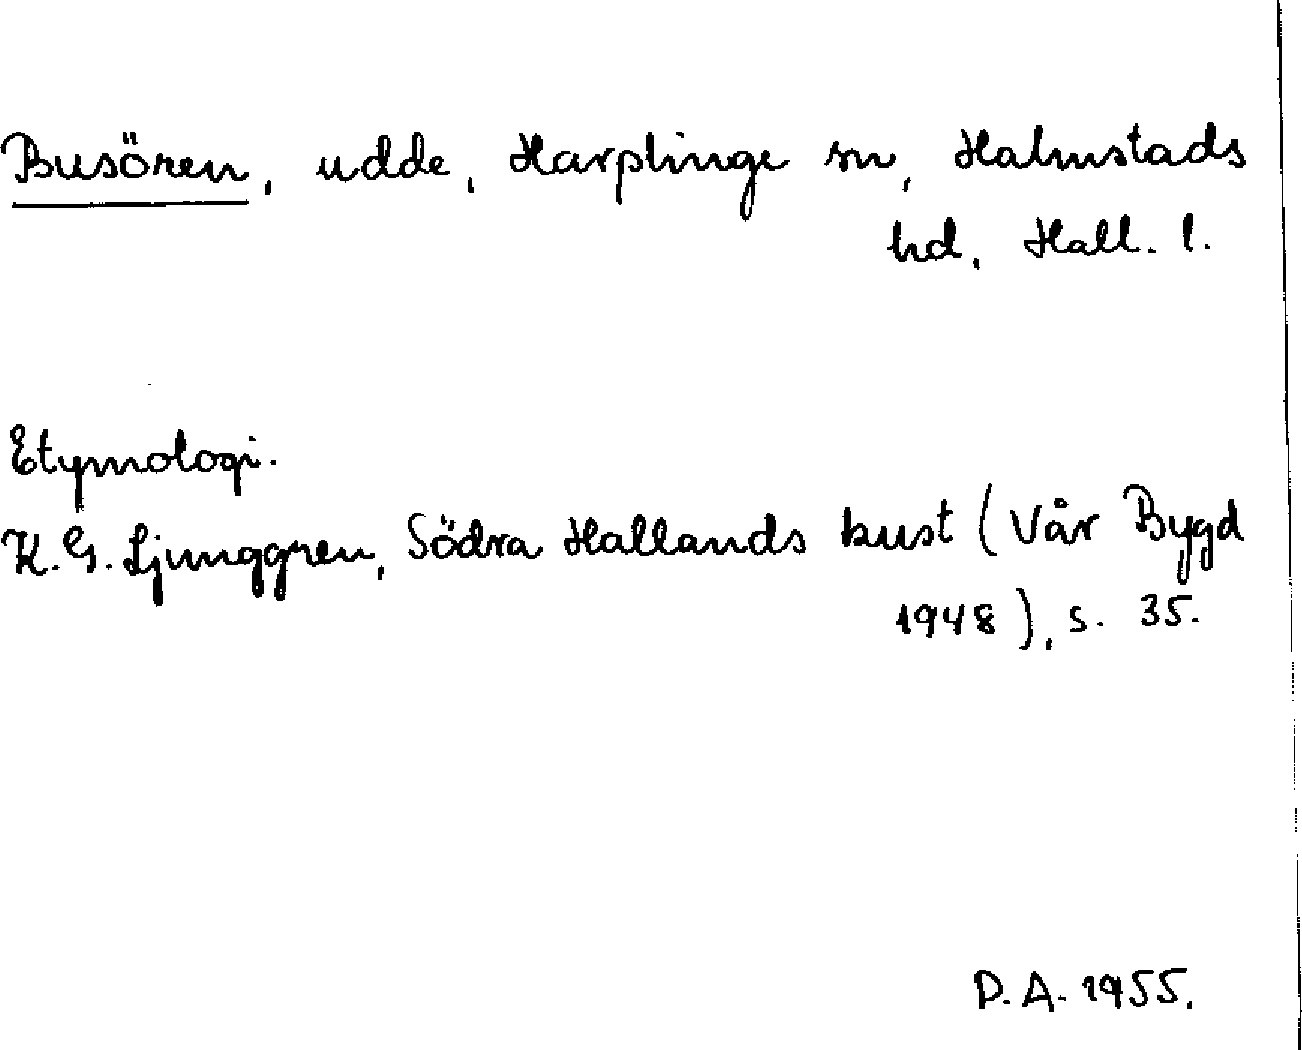 Busören, udde, Harplinge sn, Halmstads
hd, Hall. l.
Etymologi.
K. G. Ljunggren, Södra Hallands kust (Vår Bygd
1948), s. 35.
D. A. 1955.